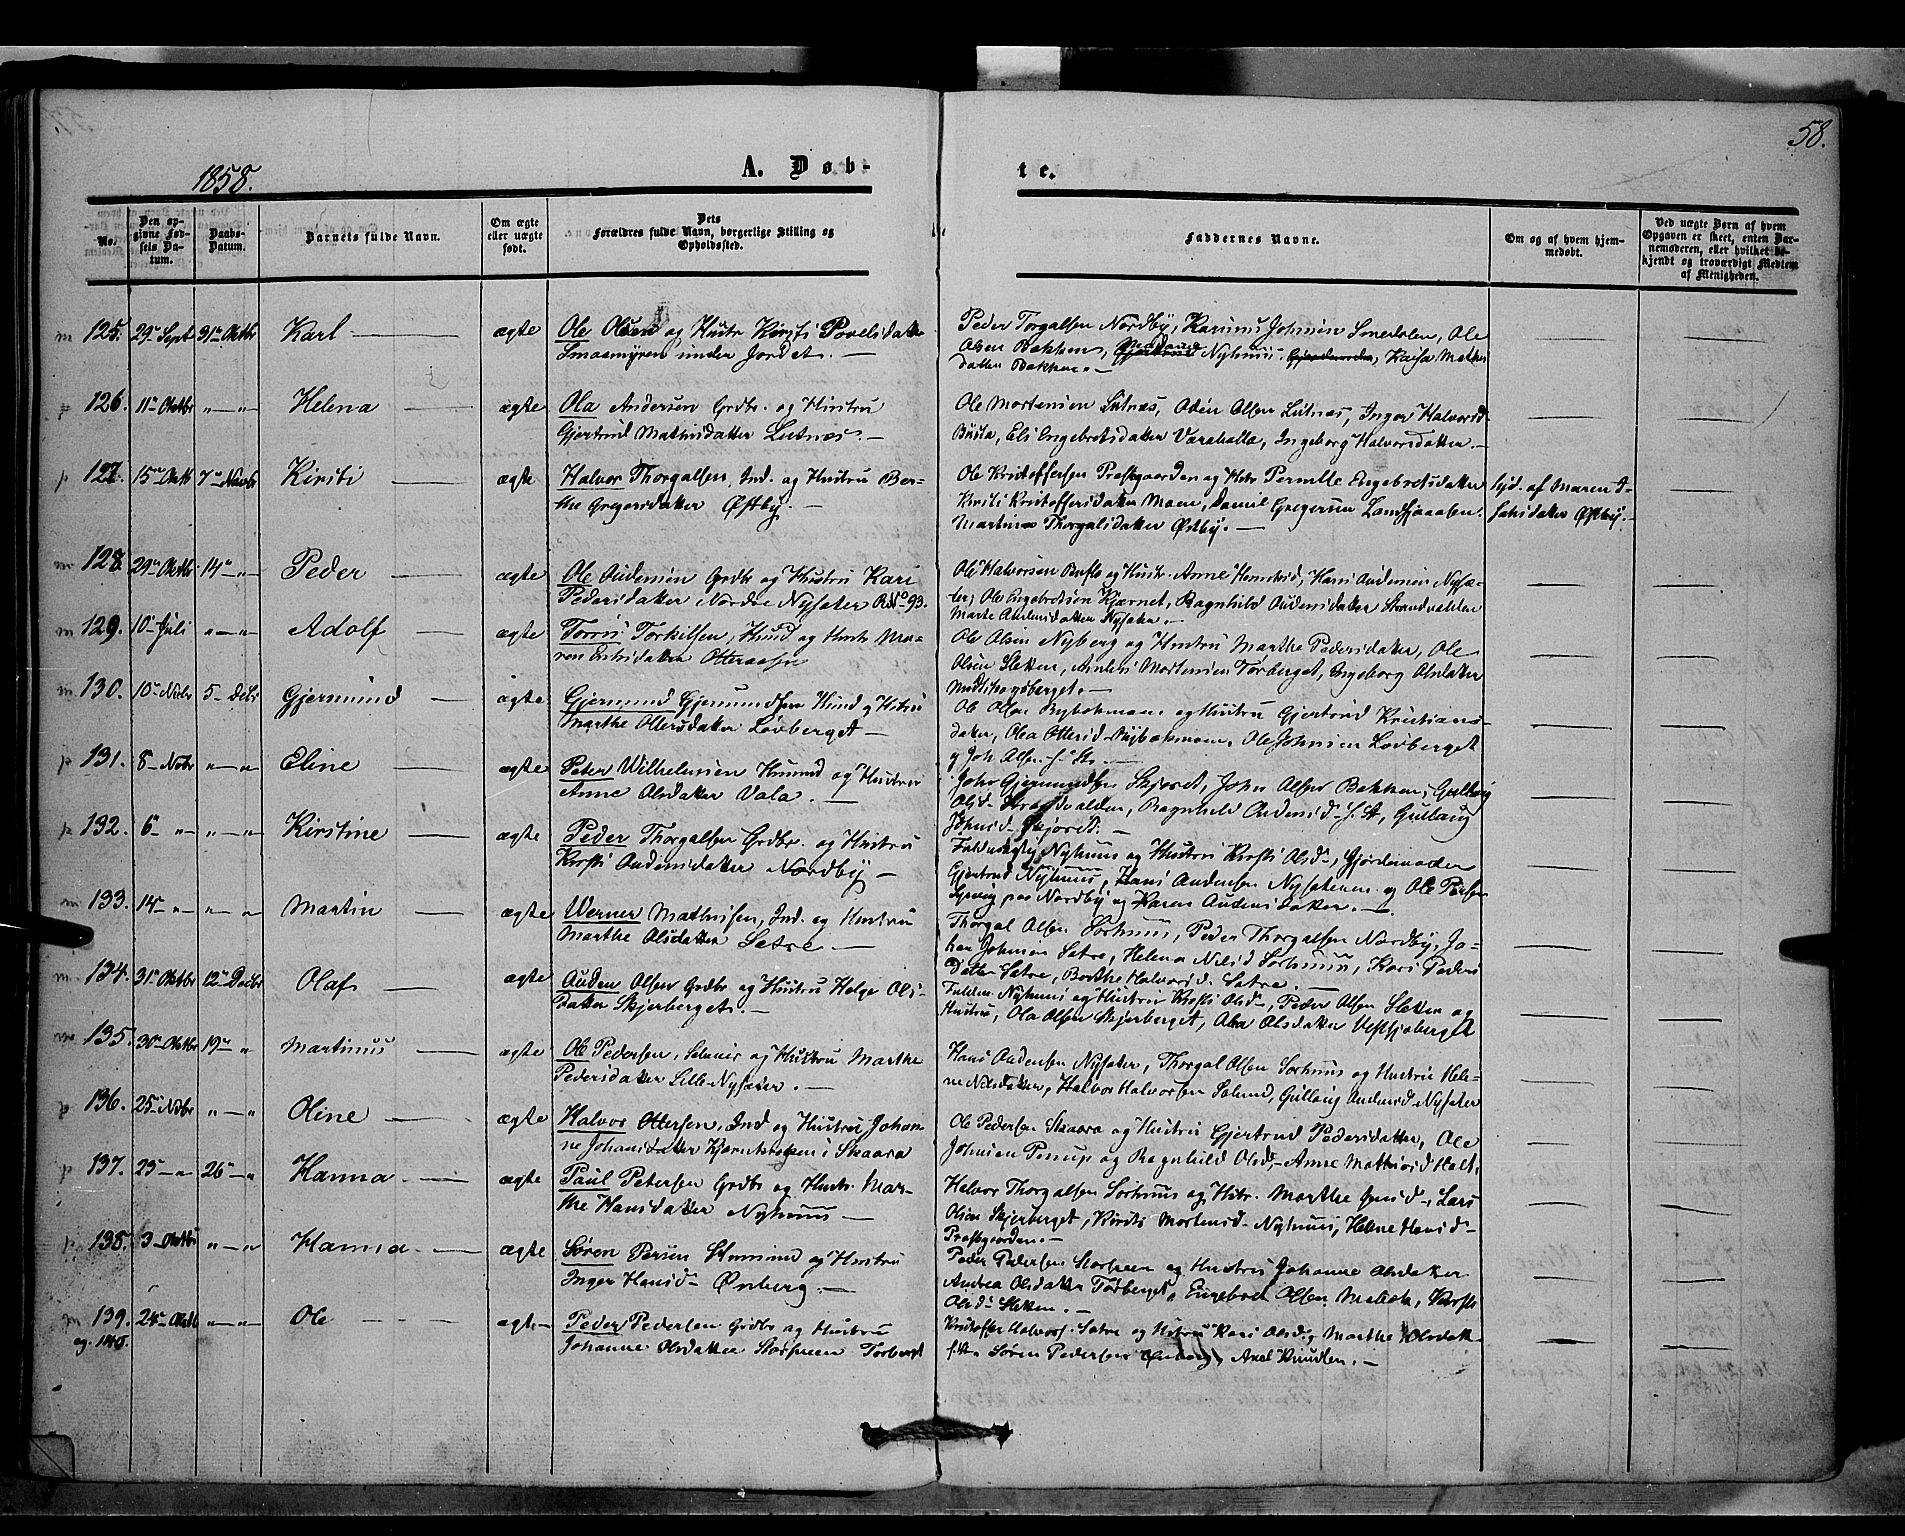 58.
1858.
A. Døb-
te.
No.
Den op-
givne Fød-
sels Da-
tum.
Daabs-
Datum.
Barnets fulde Navn.
Om ægte
eller uægte
født.
Dets
Forældres fulde Navn, borgerlige Stilling og
Opholdssted.
Faddernes Navne.
Om og af hvem hjem-
medøbt.
Ved uægte Børn af hvem
Opgaven er skeet, enten Bar-
nemoderen, eller hvilket be-
kjendt og troværdigt Medlem
af Menigheden.
m 125. 29de Sept 31te Oktbr Karl — ægte Ole Olsen og Hustr Kirsti Povelsdatter
Smaamyren under Jordet. —
Peder Torgalsen Nordby, Karinus Johnsen Smedolen, Ole
Olsen Bakken, Nyhuus,
datter Bakken. —
p 126. 11te Oktbr " — " Helena — ægte Ola Andersen Grdbr. og Hustru
Gjertrud Mathisdatter Lutnæs. —
Ole Mortensen Lutnæs, Oden Olsen Lutnæs, Inger Halvorsd
Busta, Eli Engebretsdatter Varaholla, Ingeborg Halvorsdatter. —
p 127. 15de Oktb 7de Novbr Kirsti — ægte Halvor Thorgalsen, Ind. og Hustru Ber-
the Gregersdatter Østby. —
Ole Kristoffersen Præstgaarden og Hstr Pernille Engebretsdatter
Kirsti Kristoffersdatter Moen, Daniel Gregersen
Martinea Thorgalsdatter Østby. —
jyd. af Maren J-
datter Østby. —
m 128. 29de Oktbr 14de — " Peder — ægte Ole Audensen Grdbr og Hustru Kari
Pedersdatter Nordre Nysæter RNo 93.
Ole Halvorsen og Hustr. Anne Hans Audensen Nysæ-
ter, Ole Engebretsen Kjærnet, Ragnhild Audensdatter Strandvolden
Marte Audensdatter Nysæter. —
m 129. 10de Juli " — " Adolf — ægte Torris Torkilsen, Huusmd og Hustr Ma-
ren Eriksdatter Otteraasen
Ole Olsen Nyberg og Hustru Marthe Pedersdatter, Ole
Olsen Sletten, Anders Mortensen Torberget, Ingeborg Olsdatter
Midtskogsberget. —
m 130. 10de Novbr 5te Debr Gjermund ægte Gjermund Gjermundsen Huusmd og Hstru
Marthe Ottersdatter Løvberget —
Ole Olsen Nybakmoen og Hustru Gjertrud Kristians-
datter, Ola Ottersd. Nybakmoen, Ole Johnsen Lovberget
og Joh. Olsen
p 131. 8de Nobr " — " Eline — ægte Peter Wilhelmsen Huusmd og Hustru
Anne Olsdatter Vala. —
John Gjermundsen Skjæret, John Olsen Bakken, Gullaug
Olsd. Strandvolden, Ragnhild Audensd — , Gullaug
Johnsd. Skjæret. —
p 132. 6te — " " — " Kirstine — ægte Peder Thorgalsen Grdbr. og Hustru
Kirsti Audensdatter Nordby —
Fuldmægtig Nyhuus og Hustru Kirsti Olsd., Gjordemoder
Gjertrud Nyhuus, Hans Audensen Nysæteren og Ole Persen
paa Nordby og Karen Audensdatter. —
m 133. 14de — " " — " Martin — ægte Werner Mathisen, Ind. og Hustru
Marthe Olsdatter Sætre —
Thorgal Olsen Sorhuus, Peder Thorgalsen Nordby, Jo-
han Johnsen Sætre, Helena Nilsd Sorhuus, Kari Peders-
datter Sætre, Berthe Halvorsd. Sætre. —
m 134. 31te Oktbr 12te Decbr Olaf — ægte Auden Olsen Grdbr og Hustru Helge Ols-
datter Skjærberget. —
Fuldm. Nyhuus og Hustru Kirsti Olsd., Peder Olsen Sletten og
Hustru, Ola Olsen Skjærberget, Olea Olsdatter Vestsjøberget
m 135. 30te Oktbr 19de " Martinus — ægte Ole Pedersen, Selveier og Hustru Marthe
Pedersdatter Lille Nysæter. —
Hans Audensen Nysæter, Thorgal Olsen Sorhuus og Hustru Hele-
ne Nilsdatter, Halvor Halvorsen Gullaug Audensd Nysæter
p 136. 25de Nobr " — " Oline — ægte Halvor Ottersen, Ind og Hustru Johan-
ne Johansdatter i Skaara
Ole Pedersen Skaara og Hustru Gjertrud Pedersdatter, Ole
Johnsen og Ragnhild Olsd. Anne Mathisd Holt.
p 137. 23de — " 26de " Hanna — ægte Paul Petersen Grdbr og Hustr. Mar-
the Hansdatter Nyhuus —
Halvor Thorgalsen Sorhuus og Hstr. Marthe , Lars
Olsen Skjærberget, Kirsti Mortensd. Nyhuus, Helene Hansd —
Præstgaarden. —
p. 138. 3de Oktbr " — " Hanna — ægte Søren Persen Huusmd og Hustru
Inger Hansd. Ørnberg. —
Peder Pedersen Storsveen og Hustru Johanne Olsdatter
Andrea Olsdatter Torberget, Engebret Olsen , Kirsti
Olsd. Sletten. —
m 139. 24de Oktb " — " Ole — ægte — Peder Pedersen Grdbr og Hustru
og 140. Johanne Olsdatter Storsveen Torberget
Kristoffer Halvors. Sætre og Hstru Kari Olsd, Marthe Olsdat-
Søren Pedersen Axel Knudsen. —